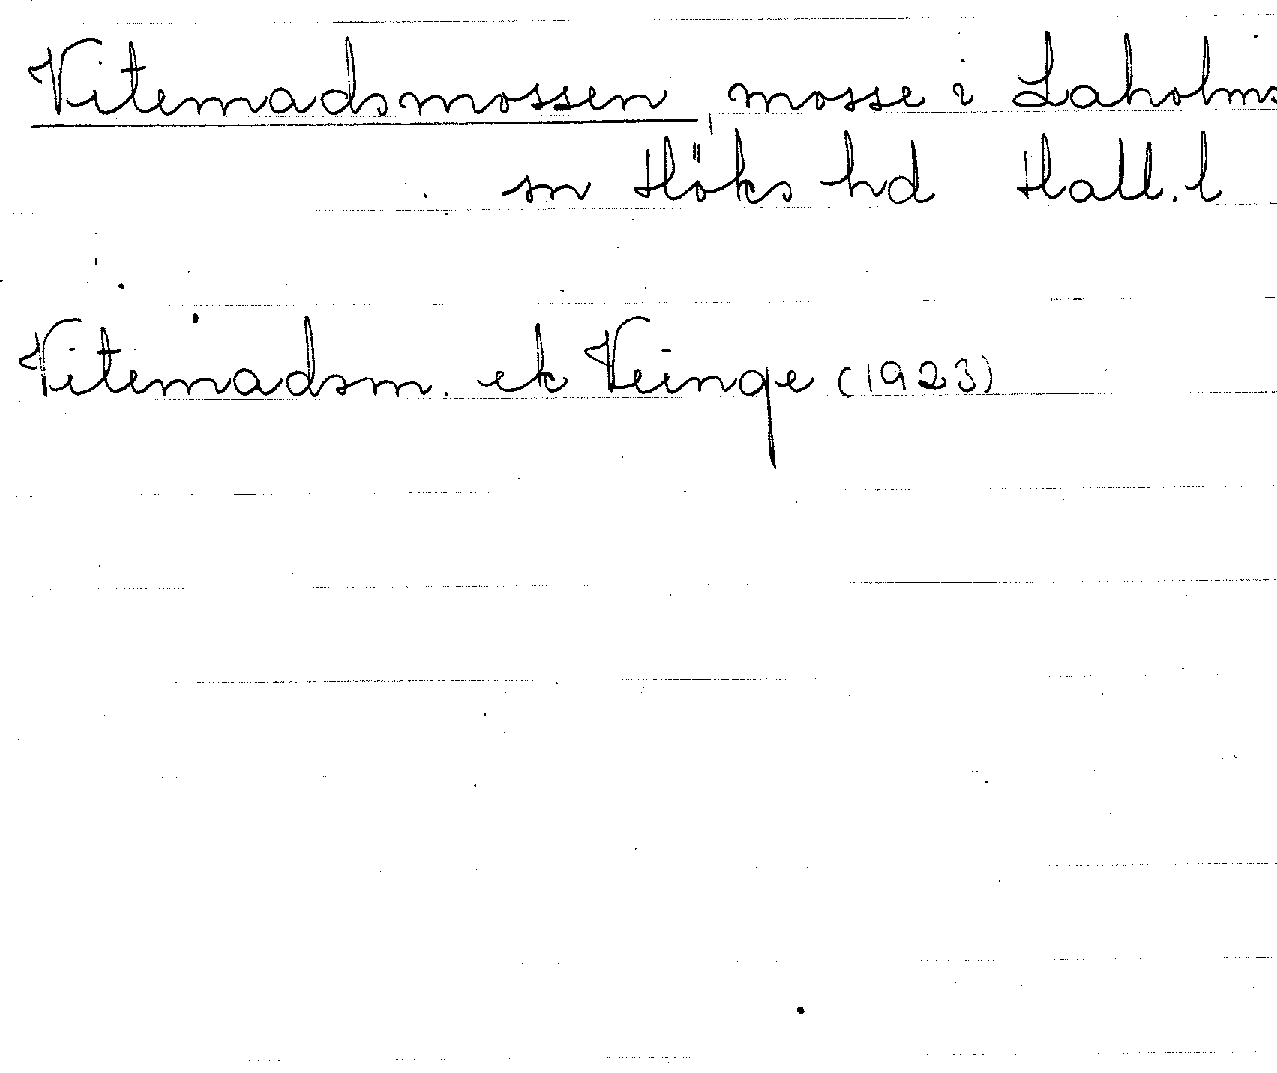 Vitemadsmossen, mosse i Laholms
sn Höks hd Hall. l
Vitemadsm. ek Veinge (1923)